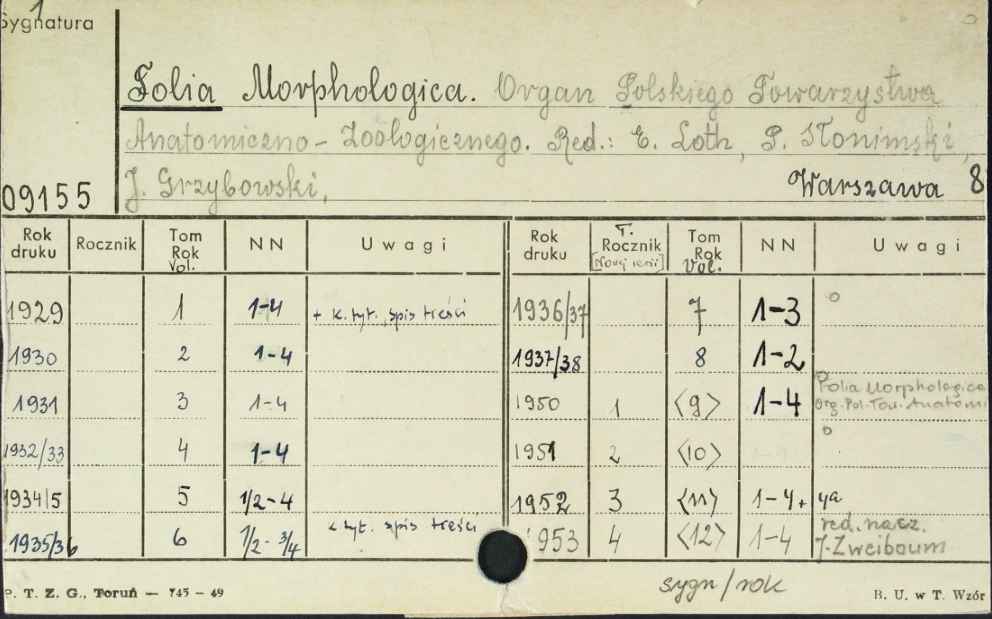 Sygnatura
Folia Morphologica. Organ Polskiego Towarzystwa
Anatomiczno-Zoologicznego. Red.: E. Loth, P. Słonimski,
J. Grzybowski,
09155
Warszawa 8
Rok druku Rocznik Tom Rok Vol. NN Uwagi Rok druku T. Rocznik [Nowej serii] Tom Rok Vol. NN Uwagi
1929 1 1-4 + k. tyt., spis treści 1936/37 7 1-3
1930 2 1-4 1937/38 8 1-2
1931 3 1-4 1950 1 <9> 1-4 Folia Morphologica Org. Pol. Tow. Anatom
1932/33 4 1-4 1951 2 <10>
1934/5 5 1/2-4 1952 3 <11> 1-4+4a
1935/36 6 1/2-3/4 k tyt. spis treści 1953 4 <12> 1-4 red. nacz. J. Zweibaum
P. T. Z. G., Toruń — 745 - 49
sygn/rok
B. U. w T. Wzór